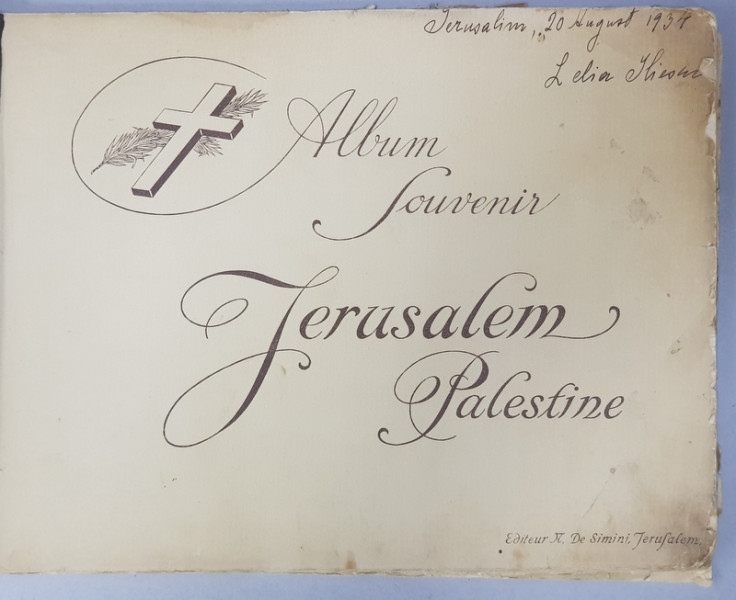 Jerusalim, 20 August 1934
Lelia
Album
Souvenir
Jerusalem
Palestine
Editeur N. De Simini, Jerusalem.